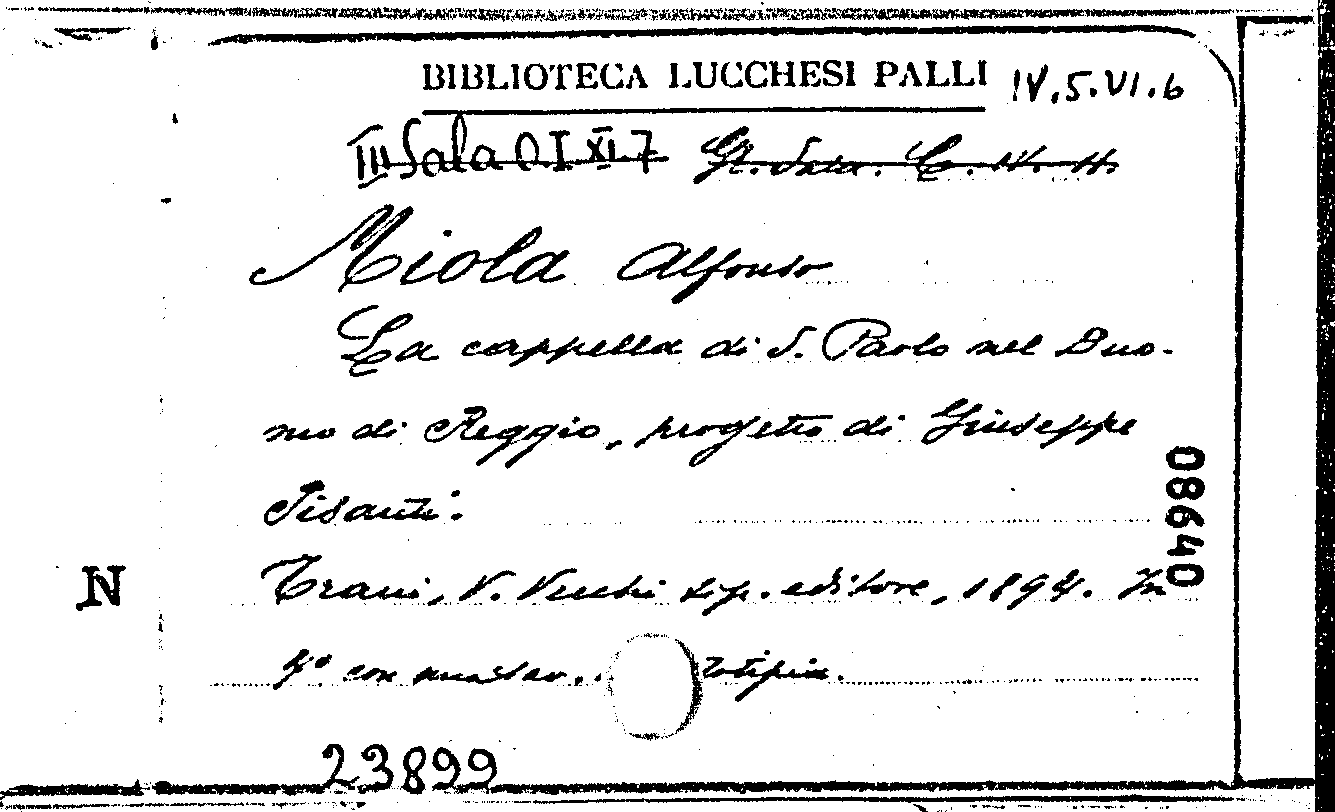 BIBLIOTECA LUCCHESI PALLI IV.5.VI.6
III Sala O I XI 7 Gr. Sala. C. IV. 11.
Miola Alfonso
La cappella di S. Paolo nel Duo-
mo di Reggio, progetto di Giuseppe
Pisanti.
08640
N
Trani, V. Vecchi tip. editore, 1894. In
4° con una tav. totipia.
23899